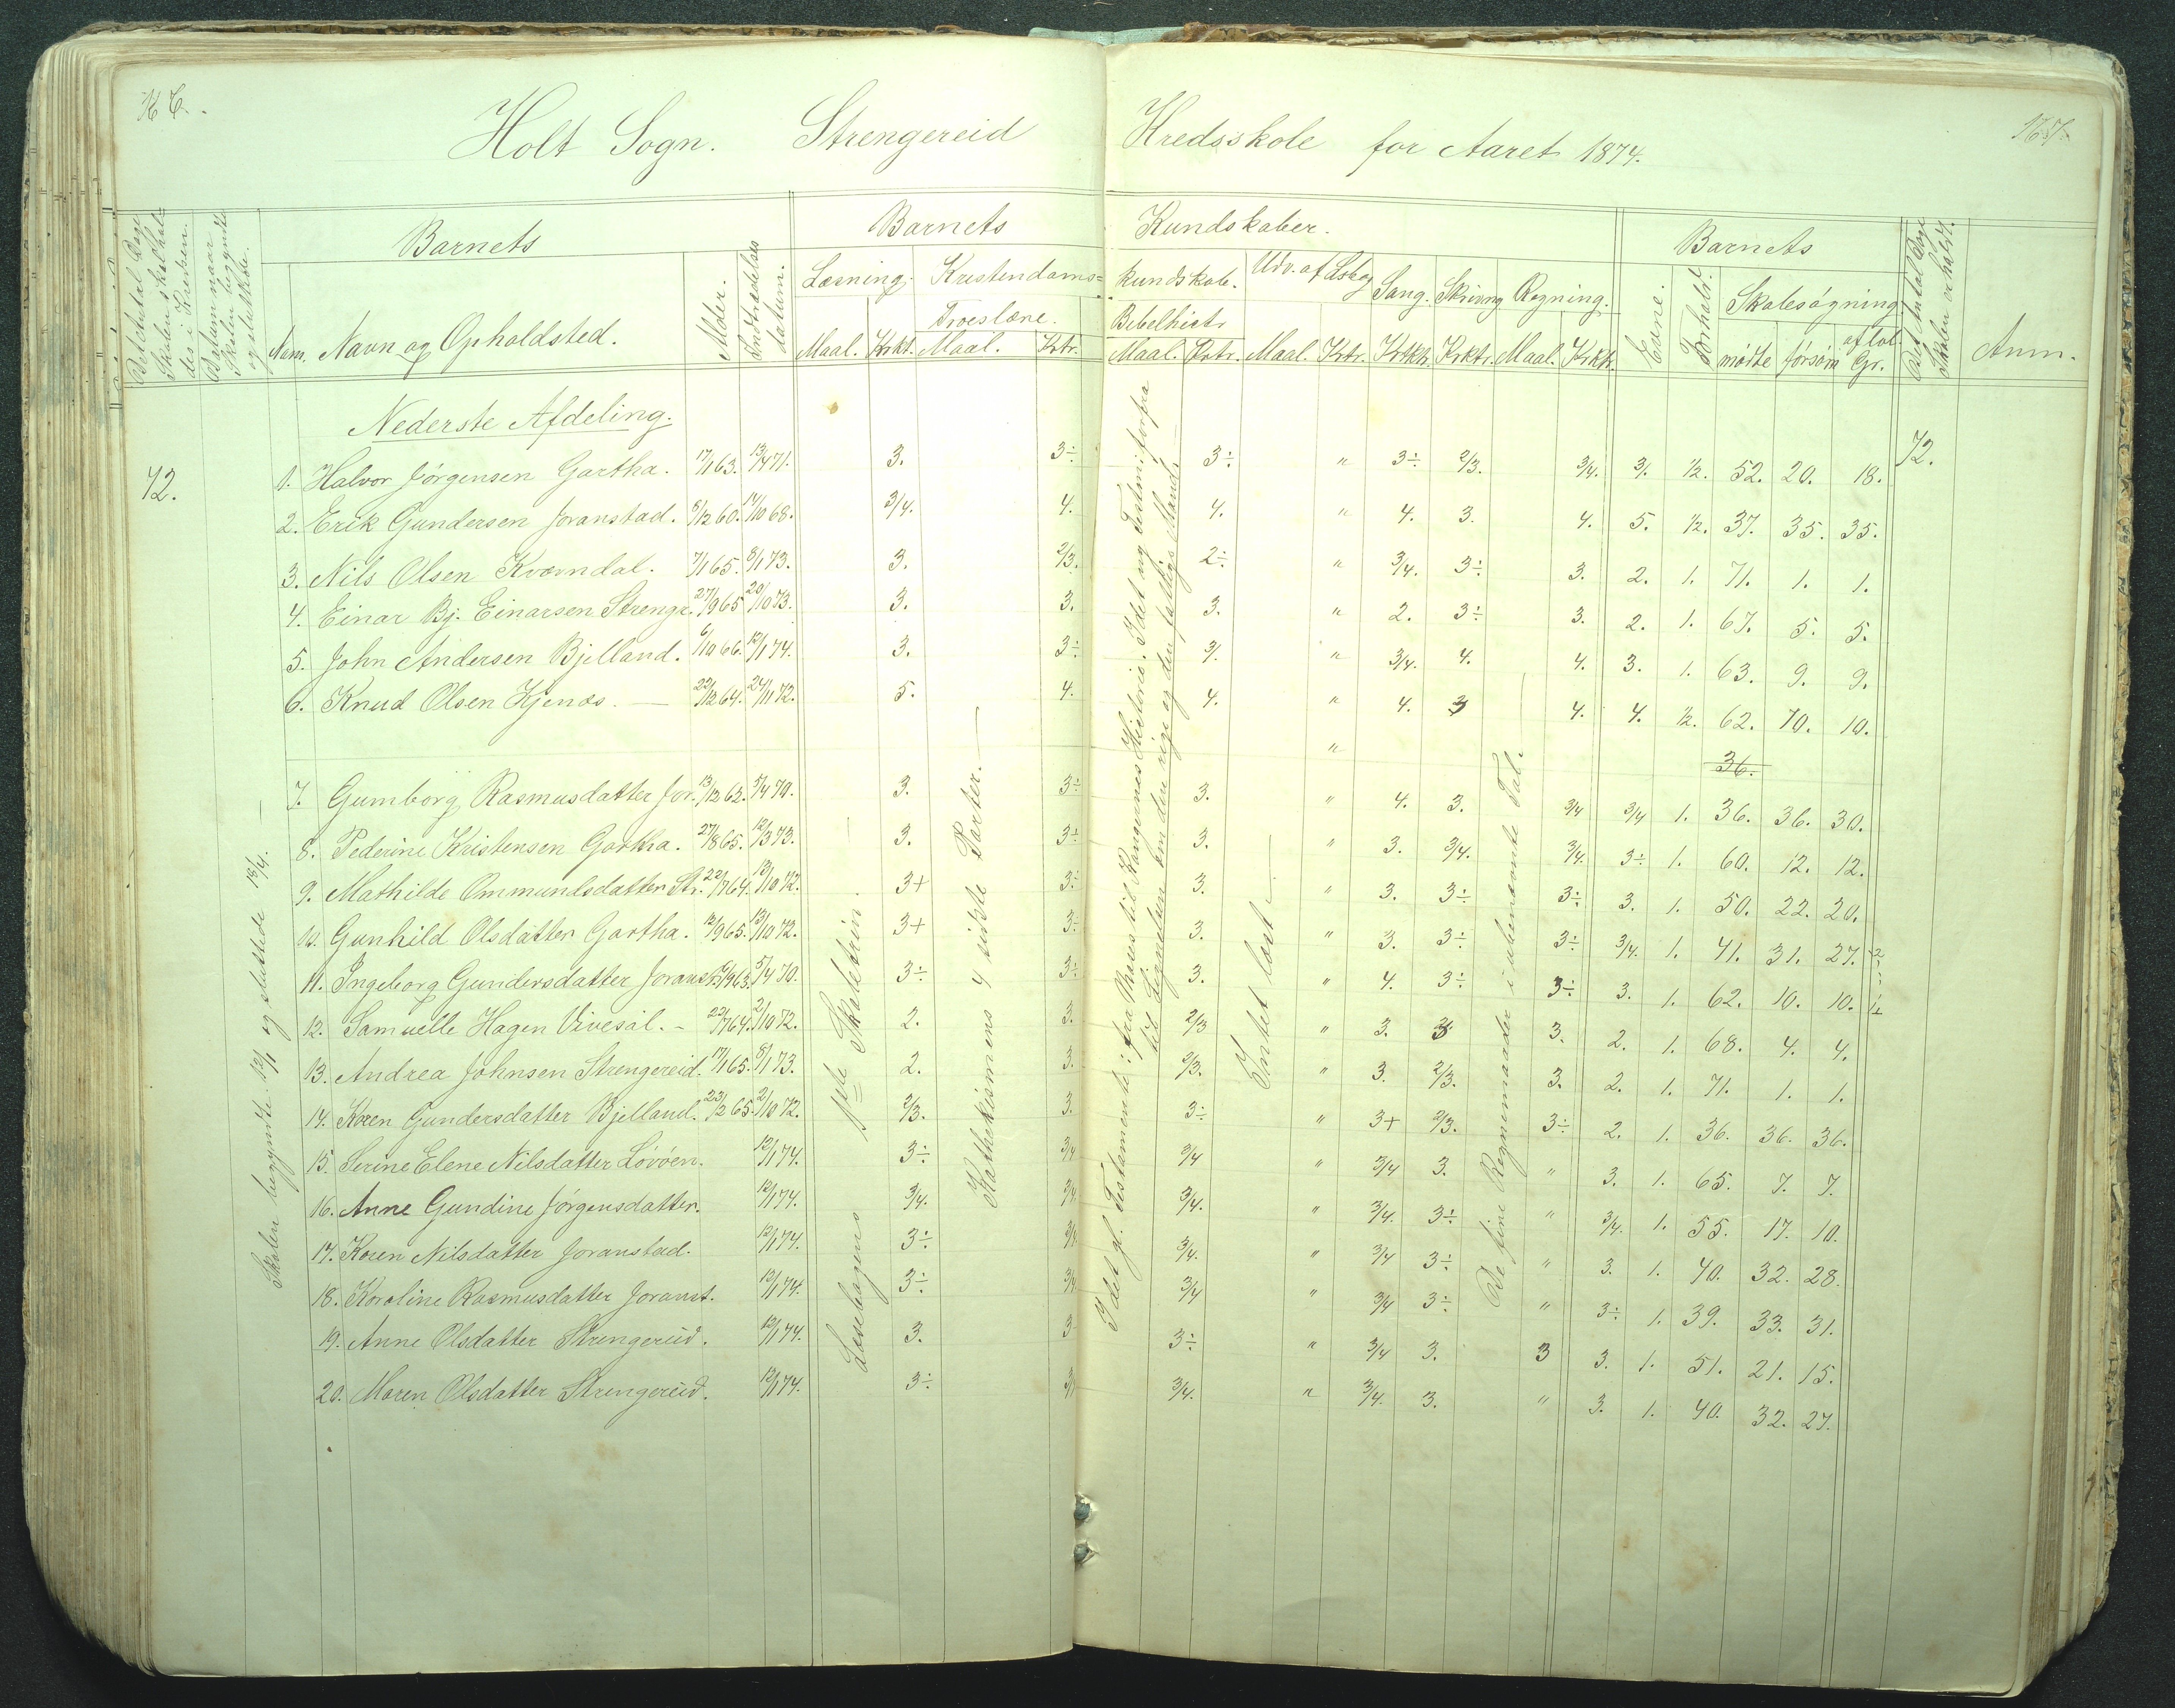 Holt Sogn. Strengereid Kredsskole for Aaret 1874. 167.
Barnets Barnets Kundskaber. Barnets
Det Antal Dage Skolen skal holdes i Kredsen.
Datum naar Skolen begyndte og sluttede.
Num. Navn og Opholdsted. Alder. Indtrædelses datum.
Læsning. Kristendoms= kundskab. Udv. af Læseb. Sang. Skrivng Regning. Evne. Forhold. Skolesøgning
Troeslære. Bibelhist.
Maal. Krkt. Maal. Krtr. Maal. Krtr. Maal. Krtr. Krktr. Krktr. Maal. Krktr. mødte forsøm af lovl. Gr.
Det Antal Dage Skolen er holdt. Anm.
Nederste Afdeling.
72. 72.
1. Halvor Jörgensen Gartha. 17/1 63. 13/4 71. 3. 3÷ 3÷ " 3÷ 2/3. 3/4. 3/. 1/2. 52. 20. 18.
2. Erik Gundersen Joranstad. 8/12 60. 17/10 68. 3/4. 4. 4. " 4. 3. 4. 5. 1/2. 37. 35. 35.
3. Nils Olsen Kvævndal. 7/1 65. 8/1 73. 3. 2/3. 2÷ " 3/4. 3÷ 3. 2. 1. 71. 1. 1.
4. Einar Bj. Einarsen Strengr. 27/9 65 20/10 73. 3. 3. 3. " 2. 3÷ 3. 2. 1. 67. 5. 5.
5. John Andersen Bjelland. 6/10 66. 12/1 74. 3. 3÷ 3/. " 3/4. 4. 4. 3. 1. 63. 9. 9.
6. Knud Olsen Kjenæs. — 22/12 64. 24/11 72. 5. 4. 4. " 4. 3 4. 4. 1/2. 62. 10. 10.
" 36.
7. Gumborg Rasmusdatter Jor. 13/12 62. 5/4 70. 3. 3÷ 3. " 4. 3. 3/4 3/4 1. 36. 36. 30.
8. Pederine Kristensen Gartha. 27/8 65. 12/3 73. 3. 3÷ 3. " 3. 3/4. 3/4. 3÷ 1. 60. 12. 12.
9. Mathilde Ommundsdatter Str. 22/7 64. 13/10 72. 3+ 3÷ 3. " 3. 3÷ 3÷ 3. 1. 50. 22. 20.
10. Gunhild Olsdatter Gartha. 12/9 65. 13/10 72. 3+ 3÷ 3. " 3. 3÷ 3÷ 3/4. 1. 41. 31. 27.
11. Ingeborg Gundersdatter Joranst. 63. 5/4 70. 3÷ 3÷ 3. " 4. 3÷ 3÷ 3. 1. 62. 10. 10.
12. Samuelle Hagen Vivesøl. - 22/7 64. 2/10 72. 2. 3. 2/3 " 3. 3 3. 2. 1. 68. 4. 4.
13. Andrea Johnsen Strengereid. 17/1 65. 8/1 73. 2. 3. 2/3. " 3. 2/3. 3. 2. 1. 71. 1. 1.
14. Karen Gundersdatter Bjelland. 23/2 65. 2/10 72. 2/3. 3. 3÷ " 3+ 2/3. 3÷ 2. 1. 36. 36. 36.
15. Serine Elene Nilsdatter Lövöen. 12/1 74. 3÷ 3/4 3/4 " 3/4 3. " 3. 1. 65. 7. 7.
16. Anne Gundine Jörgensdatter. 12/1 74. 3/4. 3/4. 3/4. " 3/4. 3÷ " 3/4. 1. 55. 17. 10.
17. Karen Nilsdatter Joranstad. 12/1 74. 3÷ 3/4. " 3/4 3÷ " 3. 1. 40. 32. 28.
18. Karoline Rasmusdatter Joranst. 12/1 74. 3÷ 3/4 3/4 " 3/4 3÷ " 3÷ 1. 39. 33. 31.
19. Anne Olsdatter Strengereid. 12/1 74. 3. 3 3÷ " 3/4 3. 3 3. 1. 51. 21. 15.
20. Maren Olsdatter Strengereid. 12/1 74. 3÷ 3/4. " 3/4. 3. " 3. 1. 40. 32. 27.
Skolen begyndte 12/1 og sluttede 18/4. —
Læsebogens 1ste Skoletrin. —
Kathekismens 4 sidste Parter. —
I det gl. Testamente: fra Moses til Kongernes Historie. I det ny Testm: forfra
til Lignelsen om den rige og den fattige Mand.
Intet læst —
De fire Regnemaader i ubenævnte Tal. —